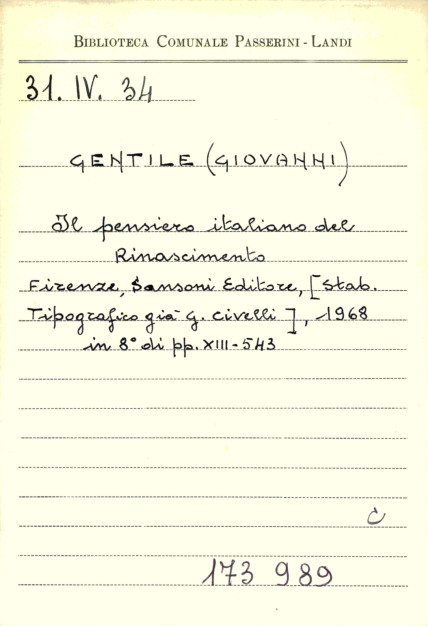 BIBLIOTECA COMUNALE PASSERINI - LANDI
31. IV. 34
GENTILE (GIOVANNI)
Il pensiero italiano del
Rinascimento
Firenze, Sansoni Editore, [Stab.
Tipografico già G. Civelli], 1968
in 8° di pp. XIII-543
C
173 989